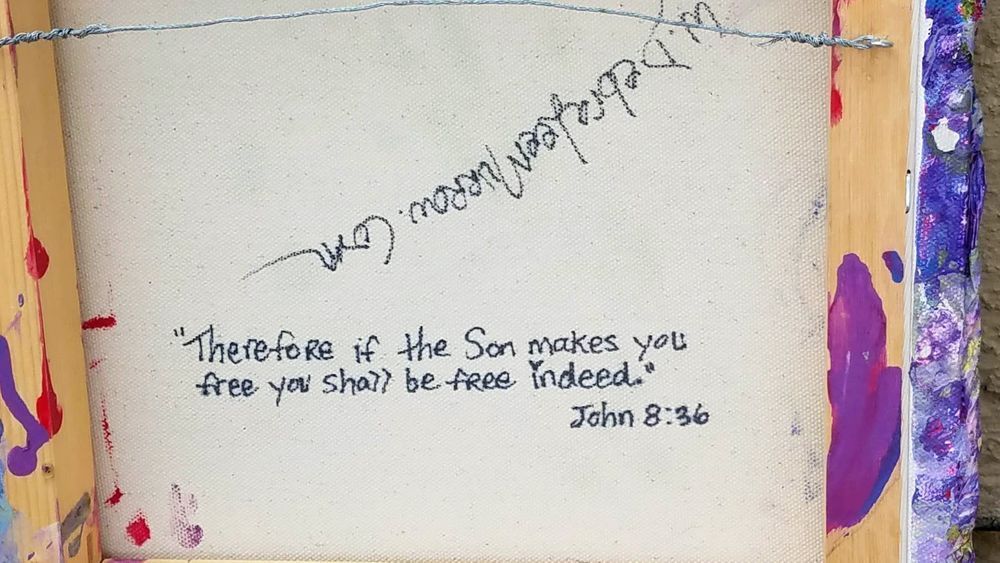 DebraleeMurrow.com
"Therefore if the Son makes you
free you shall be free indeed."
John 8:36